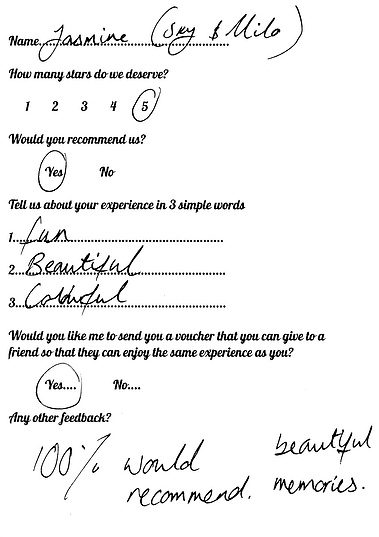 Name....Jasmine (Sky & Milo)
How many stars do we deserve?
1 2 3 4 5
Would you recommend us?
Yes No
Tell us about your experience in 3 simple words
1. fun
2. Beautiful
3. Colourful
Would you like me to send you a voucher that you can give to a
friend so that they can enjoy the same experience as you?
Yes.... No....
Any other feedback?
100% would
recommend.
beautiful
memories.